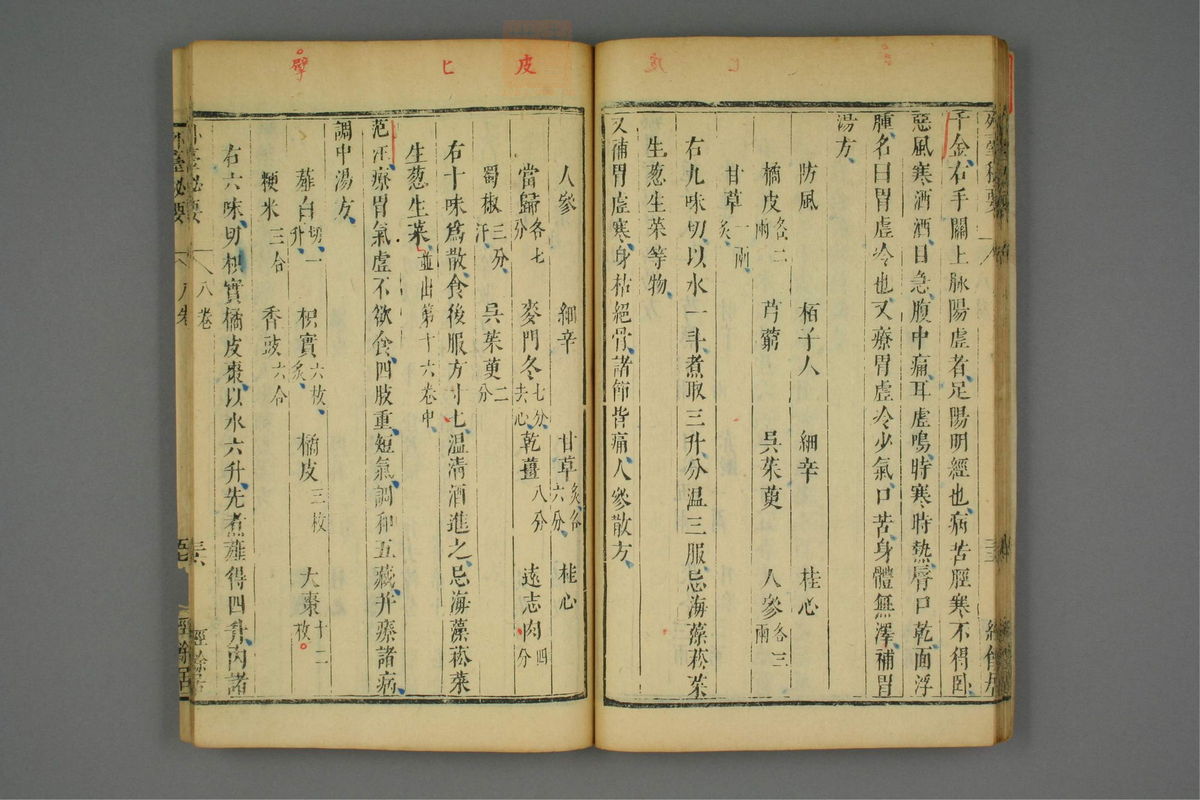 千金右手關上脉陽虛者足陽明經也病苦脛寒不得卧
惡風寒洒洒目急腹中痛耳虛鳴時寒時熱脣口乾面浮
腫名曰胃虛冷也又療胃虛冷少氣口苦身體無澤補胃
湯方
防風 栢子人 細辛 桂心
橘皮各二兩 芎藭 吳茱萸 人參各三兩
甘草一兩炙
右九味切以水一斗煮取三升分温三服忌海藻菘菜
生葱生菜等物
又補胃虛寒身枯絕骨諸節皆痛人參散方
皮
匕
擘
人參 細辛 甘草炙各六分 桂心
當歸各七分 麥門冬七分去心 乾薑八分 遠志肉四分
蜀椒三分汗 吳茱萸二分
右十味為散食後服方寸匕温清酒進之忌海藻菘菜
生葱生菜並出第十六卷中
范汪療胃氣虛不欲食四肢重短氣調和五藏并療諸病
調中湯方
薤白切一升 枳實六枚炙 橘皮三枚 大棗十二枚
粳米三合 香豉六合
右六味切枳實橘皮棗以水六升先煮薤得四升內諸
八卷 經餘居
外臺秘要 八卷 經餘居